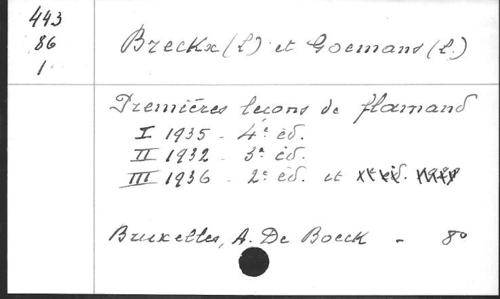 443
86
1.
Breckx (L) et Goemans (L.)
Premières leçons de flamand
I 1935 - 4e éd.
II 1932 - 3e éd.
III 1936 - 2e éd. et
Bruxelles, A. De Boeck - 8o